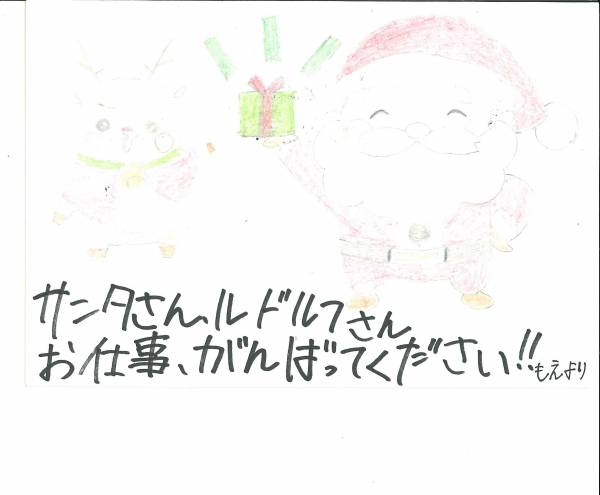 サンタさん、ルドルフさん
お仕事、がんばってください!!
もえより